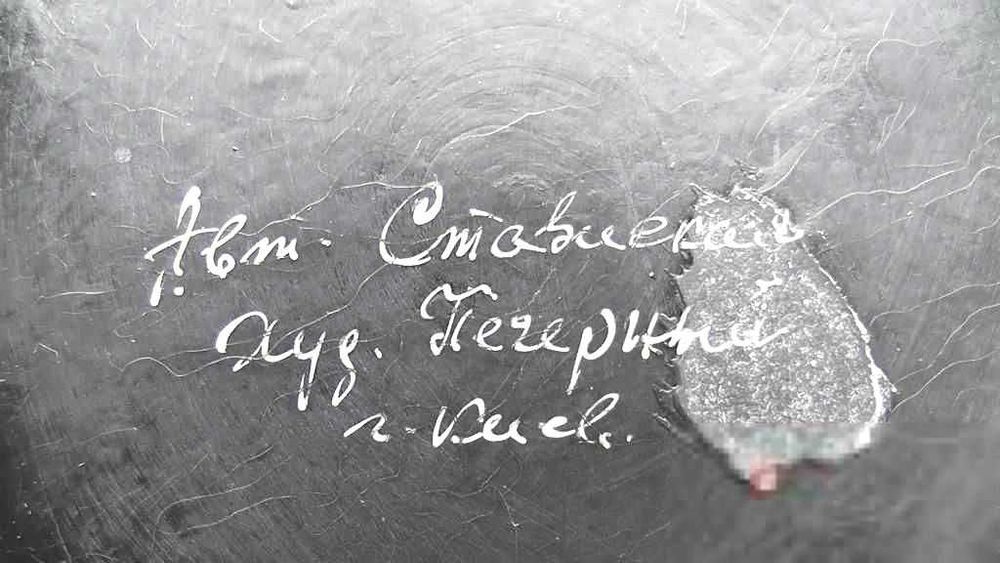 Авт. Ставиский
Худ. Печерный
г. Киев.